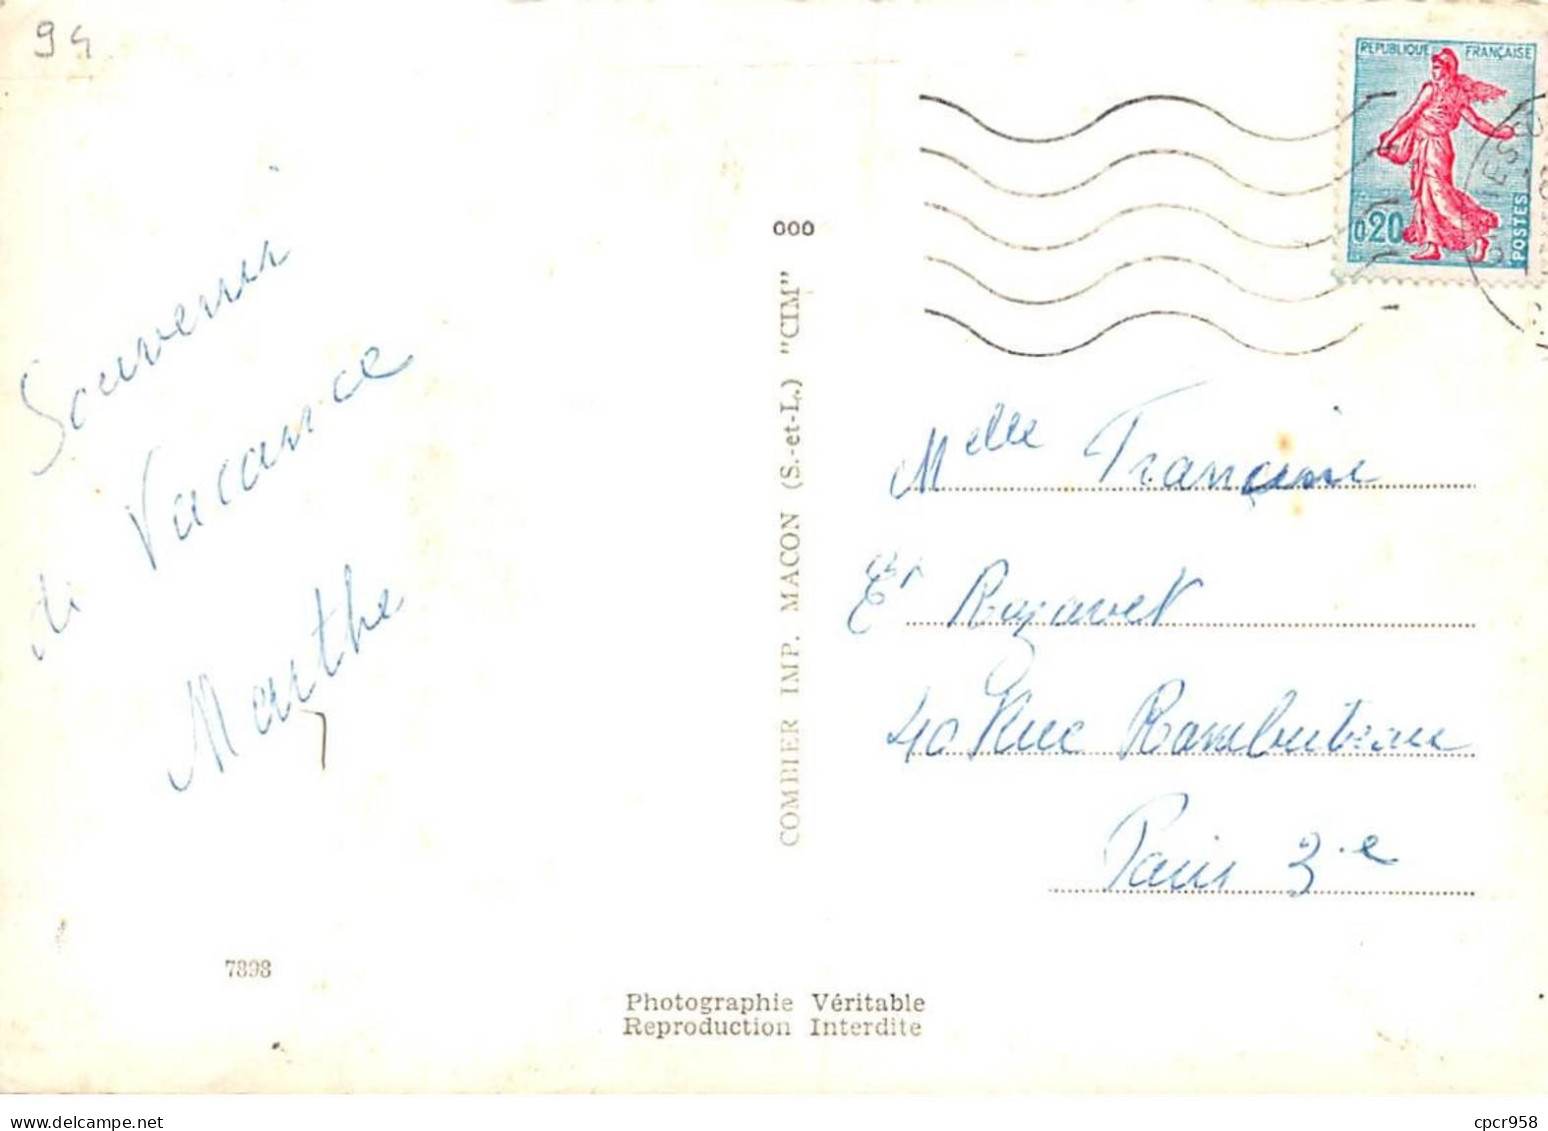 94
Souvenir
de Vacance
Marthe
7898
Photographie Véritable
Reproduction Interdite
000
COMBIER IMP. MACON (S.-et-L.) "CIM"
REPUBLIQUE FRANÇAISE
0,20
POSTES
Melle Francine
Et Razavet
40 Rue Rambuteau
Paris 3e
cpcr958